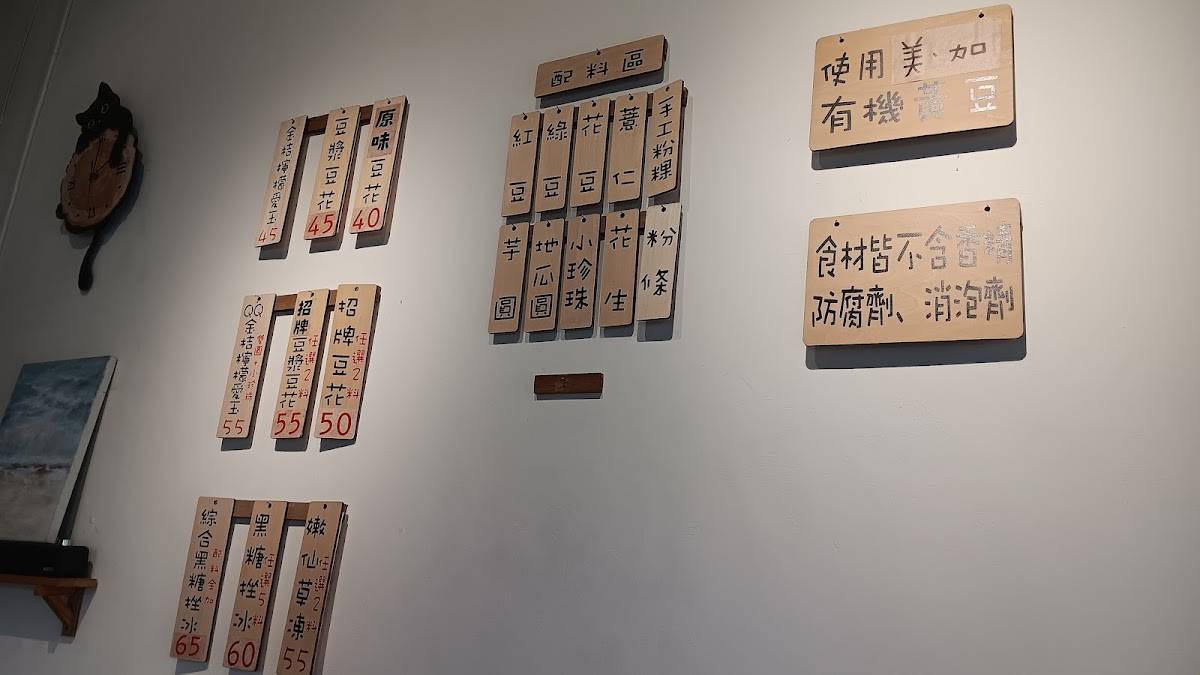 原味豆花 40
豆漿豆花 45
金桔檸檬愛玉 45
招牌豆花 任選2料 50
招牌豆漿豆花 任選2料 55
QQ金桔檸檬愛玉 雙圓+小珍珠 55
嫩仙草凍 任選2料 55
黑糖挫冰 任選5料 60
綜合黑糖挫冰 配料全加 65
配料區
紅豆
綠豆
花豆
薏仁
手工粉粿
芋圓
地瓜圓
小珍珠
花生
粉條
使用美、加
有機黃豆
食材皆不含香精
防腐劑、消泡劑